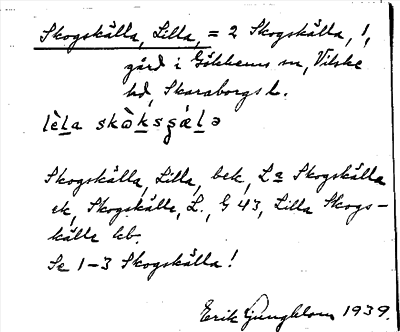 Skogskälla, Lilla, = 2 Skogskälla, !,
gård i Gökhems sn, Vilske
hd, Skaraborgs l.
lèla skòksʒálə
Skogskälla, Lilla, bek, La Skogskälla
ek, Skogskälla, L., G 43, Lilla Skogs-
källa hb.
Se 1-3 Skogskälla!
Erik Ljungblom 1939.